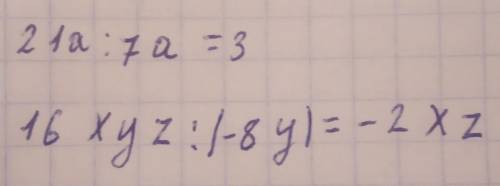 21a : 7a = 3
16 xyz : (-8y) = -2xz